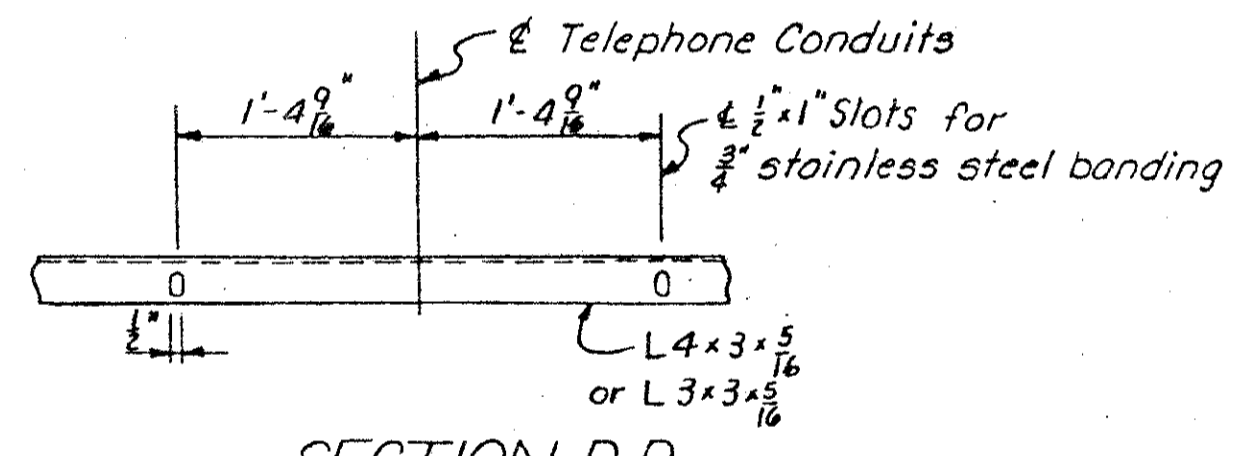 ℄ Telephone Conduits
1'-4 9/16"
1'-4 9/16"
℄ 1/2" x 1" Slots for
3/4" stainless steel banding
0
0
1/2"
L 4 x 3 x 5/16
or L 3 x 3 x 5/16
SECTION